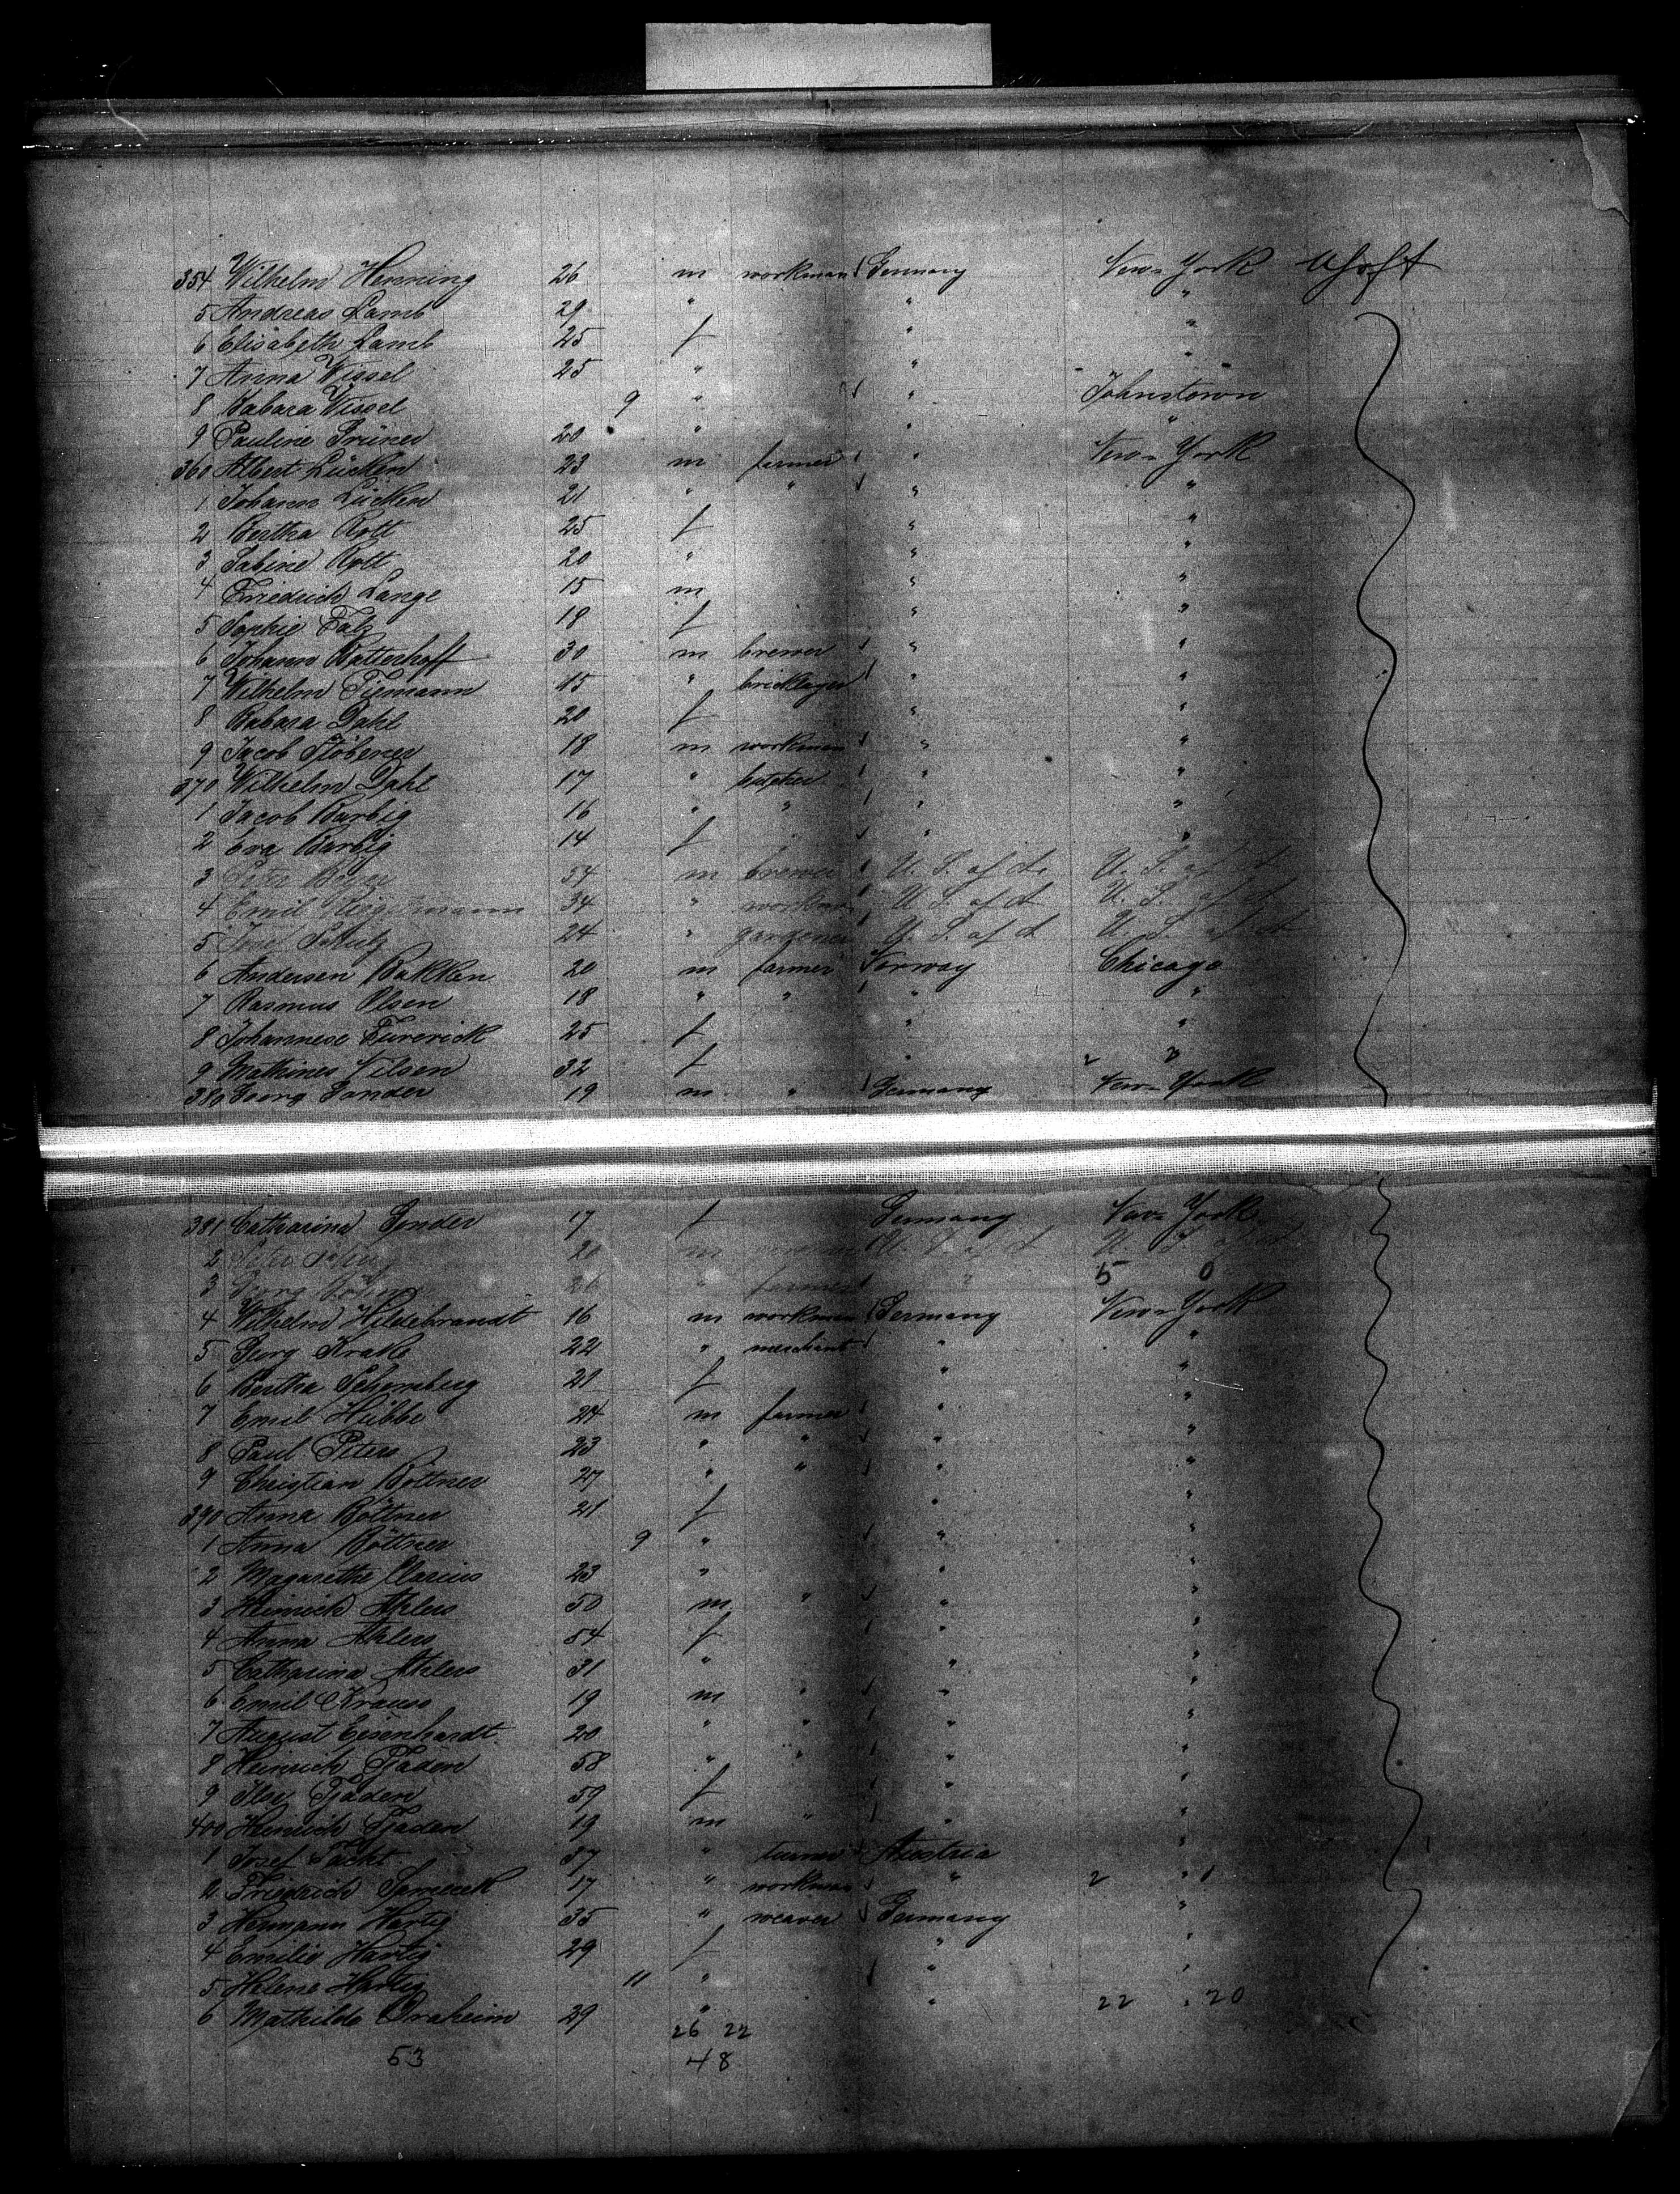 354 Wilhelm Henning 26 m workman Germany New-York
5 Andreas Lamb 29 " " "
6 Elisabeth Lamb 25 f " "
7 Anna Wissel 25 " " "
8 Babara Wissel 9 " " Johnstown
9 Pauline Grüner 20 " " "
360 Albert Lücken 23 m farmer " New-York
1 Johann Lücken 21 " " " "
2 Bertha Rott 25 f " "
3 Sabine Rott 20 " " "
4 Friedrich Lange 15 m " "
5 Sophie Falz 19 f " "
6 Johann Batterhoff 30 m brewer " "
7 Wilhelm Tiemann 15 " bricklayer " "
8 Babara Dahl 20 f " "
9 Jacob Stöbener 18 m workman " "
370 Wilhelm Dahl 17 " butcher " "
1 Jacob Barbig 16 " " " "
2 Eva Barbig 14 f " "
3 Peter Beyer 54 m brewer U. S. of A. U. S. of A.
4 Emil 34 " workman U. S. of A U. S. of A
5 Josef Schulz 24 " gardener U. S. of A U. S. of A
6 Andersen Bakken 20 m farmer Norway Chicago
7 Rasmus Olsen 18 " " " "
8 Johannese 25 f " "
9 Mathines Nilsen 32 f " 2 2
380 Georg Sander 19 m " Germany New-York
381 Catharina Sander 17 f Germany New-York
2 Peter 20 m U. S. of A U. S. of A
3 Georg 26 " farmer " 5 0
4 Wilhelm Hildebrandt 16 m workman Germany New-York
5 Georg Krake 22 " merchant " "
6 Bertha Schomberg 21 f " "
7 Emil Hübbe 24 m farmer " "
8 Paul Peters 23 " " " "
9 Christian Böttner 27 " " " "
390 Anna Böttner 21 f " "
1 Anna Böttner 9 " " "
2 Magarethe Clarius 23 " " "
3 Heinrich Ahlers 50 m " " "
4 Anna Ahlers 54 f " "
5 Catharina Ahlers 31 " " "
6 Emil Krause 19 m " " "
7 August Eisenhardt 20 " " " "
8 Heinrich Tjaden 58 " " " "
9 Ilse Tjaden 59 f " "
400 Heinrich Tjaden 19 m " " "
1 Josef Tacht 37 " turner Austria "
2 Friedrich 17 " workman " 2 " 1
3 Hermann Hartig 35 " weaver Germany "
4 Emilie Hartig 29 f " "
5 Helene Hartig 11 " " "
6 Mathilde Oraheim 29 " " 22 " 20
26 22
53 48